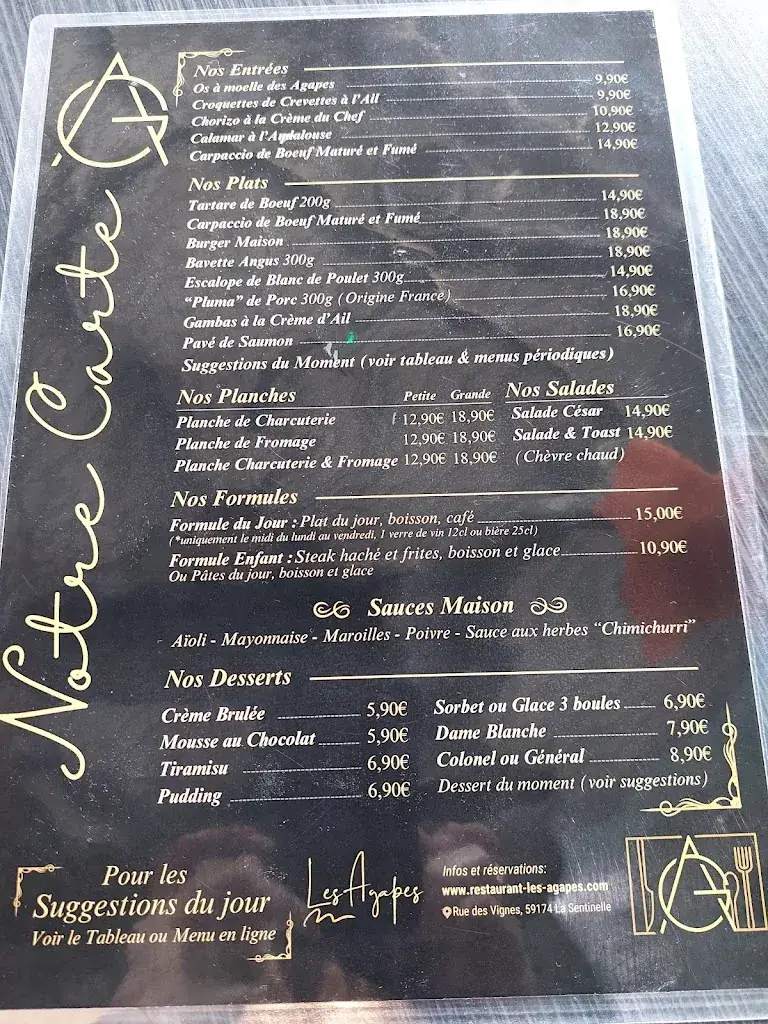 Notre Carte
Nos Entrées
Os à moelle des Agapes 9,90€
Croquettes de Crevettes à l'Ail 9,90€
Chorizo à la Crème du Chef 10,90€
Calamar à l'Andalouse 12,90€
Carpaccio de Boeuf Maturé et Fumé 14,90€
Nos Plats
Tartare de Boeuf 200g 14,90€
Carpaccio de Boeuf Maturé et Fumé 18,90€
Burger Maison 18,90€
Bavette Angus 300g 18,90€
Escalope de Blanc de Poulet 300g 14,90€
“Pluma” de Porc 300g (Origine France) 16,90€
Gambas à la Crème d'Ail 18,90€
Pavé de Saumon 16,90€
Suggestions du Moment (voir tableau & menus périodiques)
Nos Planches Petite Grande
Planche de Charcuterie 12,90€ 18,90€
Planche de Fromage 12,90€ 18,90€
Planche Charcuterie & Fromage 12,90€ 18,90€
Nos Salades
Salade César 14,90€
Salade & Toast 14,90€
(Chèvre chaud)
Nos Formules
Formule du Jour : Plat du jour, boisson, café 15,00€
(*uniquement le midi du lundi au vendredi, 1 verre de vin 12cl ou bière 25cl)
Formule Enfant : Steak haché et frites, boisson et glace 10,90€
Ou Pâtes du jour, boisson et glace
Sauces Maison
Aïoli - Mayonnaise - Maroilles - Poivre - Sauce aux herbes “Chimichurri”
Nos Desserts
Crème Brulée 5,90€
Mousse au Chocolat 5,90€
Tiramisu 6,90€
Pudding 6,90€
Sorbet ou Glace 3 boules 6,90€
Dame Blanche 7,90€
Colonel ou Général 8,90€
Dessert du moment (voir suggestions)
Pour les
Suggestions du jour
Voir le Tableau ou Menu en ligne
Les Agapes
Infos et réservations:
www.restaurant-les-agapes.com
Rue des Vignes, 59174 La Sentinelle